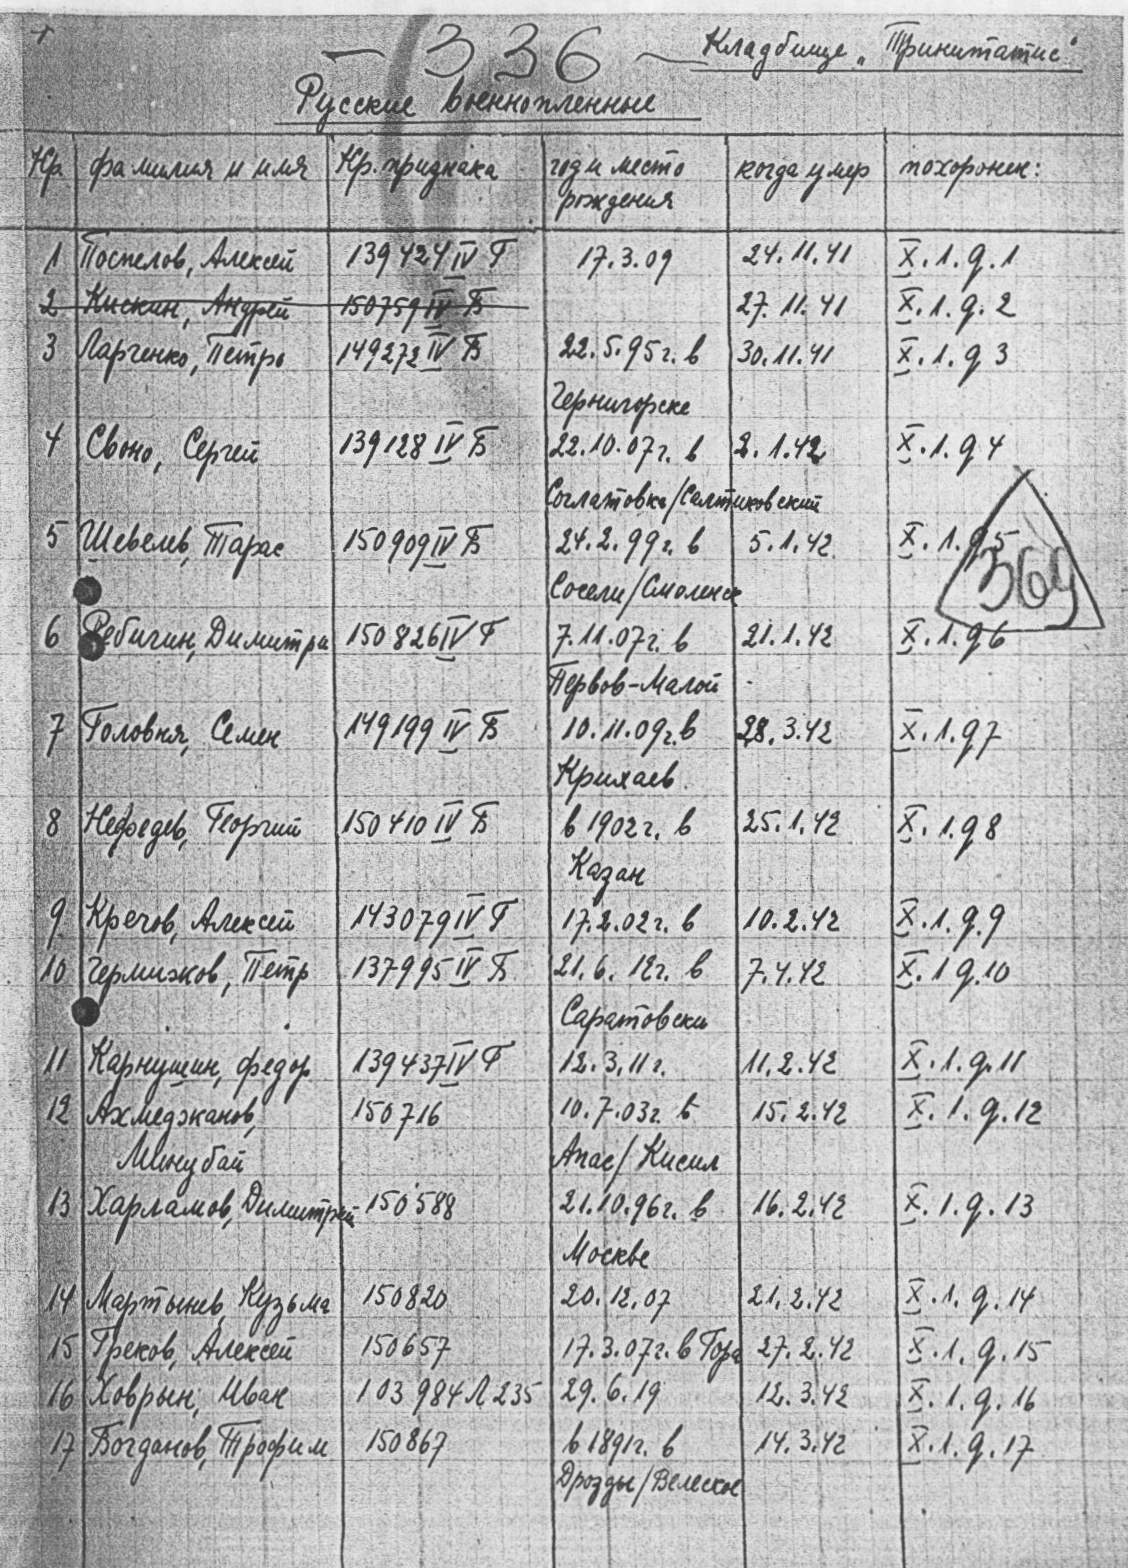 - 336 -
Кладбище „Тринитатис"
Русские военнопленные
Нр. фамилия и имя Нр. признака год и место когда умер похоронен:
рождения
1 Поспелов, Алексей 139424 IV Г 17.3.09 24.11.41 X.1.д.1
2 Кискин, Андрей 150759 IV Б 27.11.41 X.1.д.2
3 Ларченко, Петро 149272 IV Б 22.5.95г. в 30.11.41 X.1.д 3
Черничорске
4 Свано, Сергей 139128 IV Б 22.10.07г. в 2.1.42 X.1.д 4
Соглатовка/Салтиковский
5 Шевелев, Тарас 150909 IV Б 24.2.99г. в 5.1.42 X.1.д5
369
Сосели/Смоленск
6 Ребичин, Димитри 150826 IV Г 7.11.07г. в 21.1.42 X.1.д6
Первов-Малой
7 Головня, Семен 149199 IV Б 10.11.09г. в 28.3.42 X.1.д7
Крихаев
8 Нефедев, Георгий 150410 IV Б в 1902г. в 25.1.42 X.1.д8
Казан
9 Кречов, Алексей 143079 IV Г 17.2.02г. в 10.2.42 X.1.д.9
10 Чермижков, Петр 137995 IV Б 21.6.12г. в 7.4.42 X.1 д.10
Саратовски
11 Карнушин, федор 139437 IV Г 12.3.11г. 11.2.42 X.1.д.11
12 Ахмеджанов, 150716 10.7.03г. в 15.2.42 X.1.д.12
Минубай Апас/Кисил
13 Харламов, Димитрей 150588 21.10.96г. в 16.2.42 X.1.д.13
Москве
14 Мартынев, Кузьма 150820 20.12.07 21.2.42 X.1.д.14
15 Греков, Алексей 150657 17.3.07г. в Гора 27.2.42 X.1.д.15
16 Ховрын, Иван 103984 Л 235 29.6.19 12.3.42 X.1.д.16
17 Богданов, Трофим 150867 в 1891г. в 14.3.42 X.1.д.17
Дрозды/Велеское